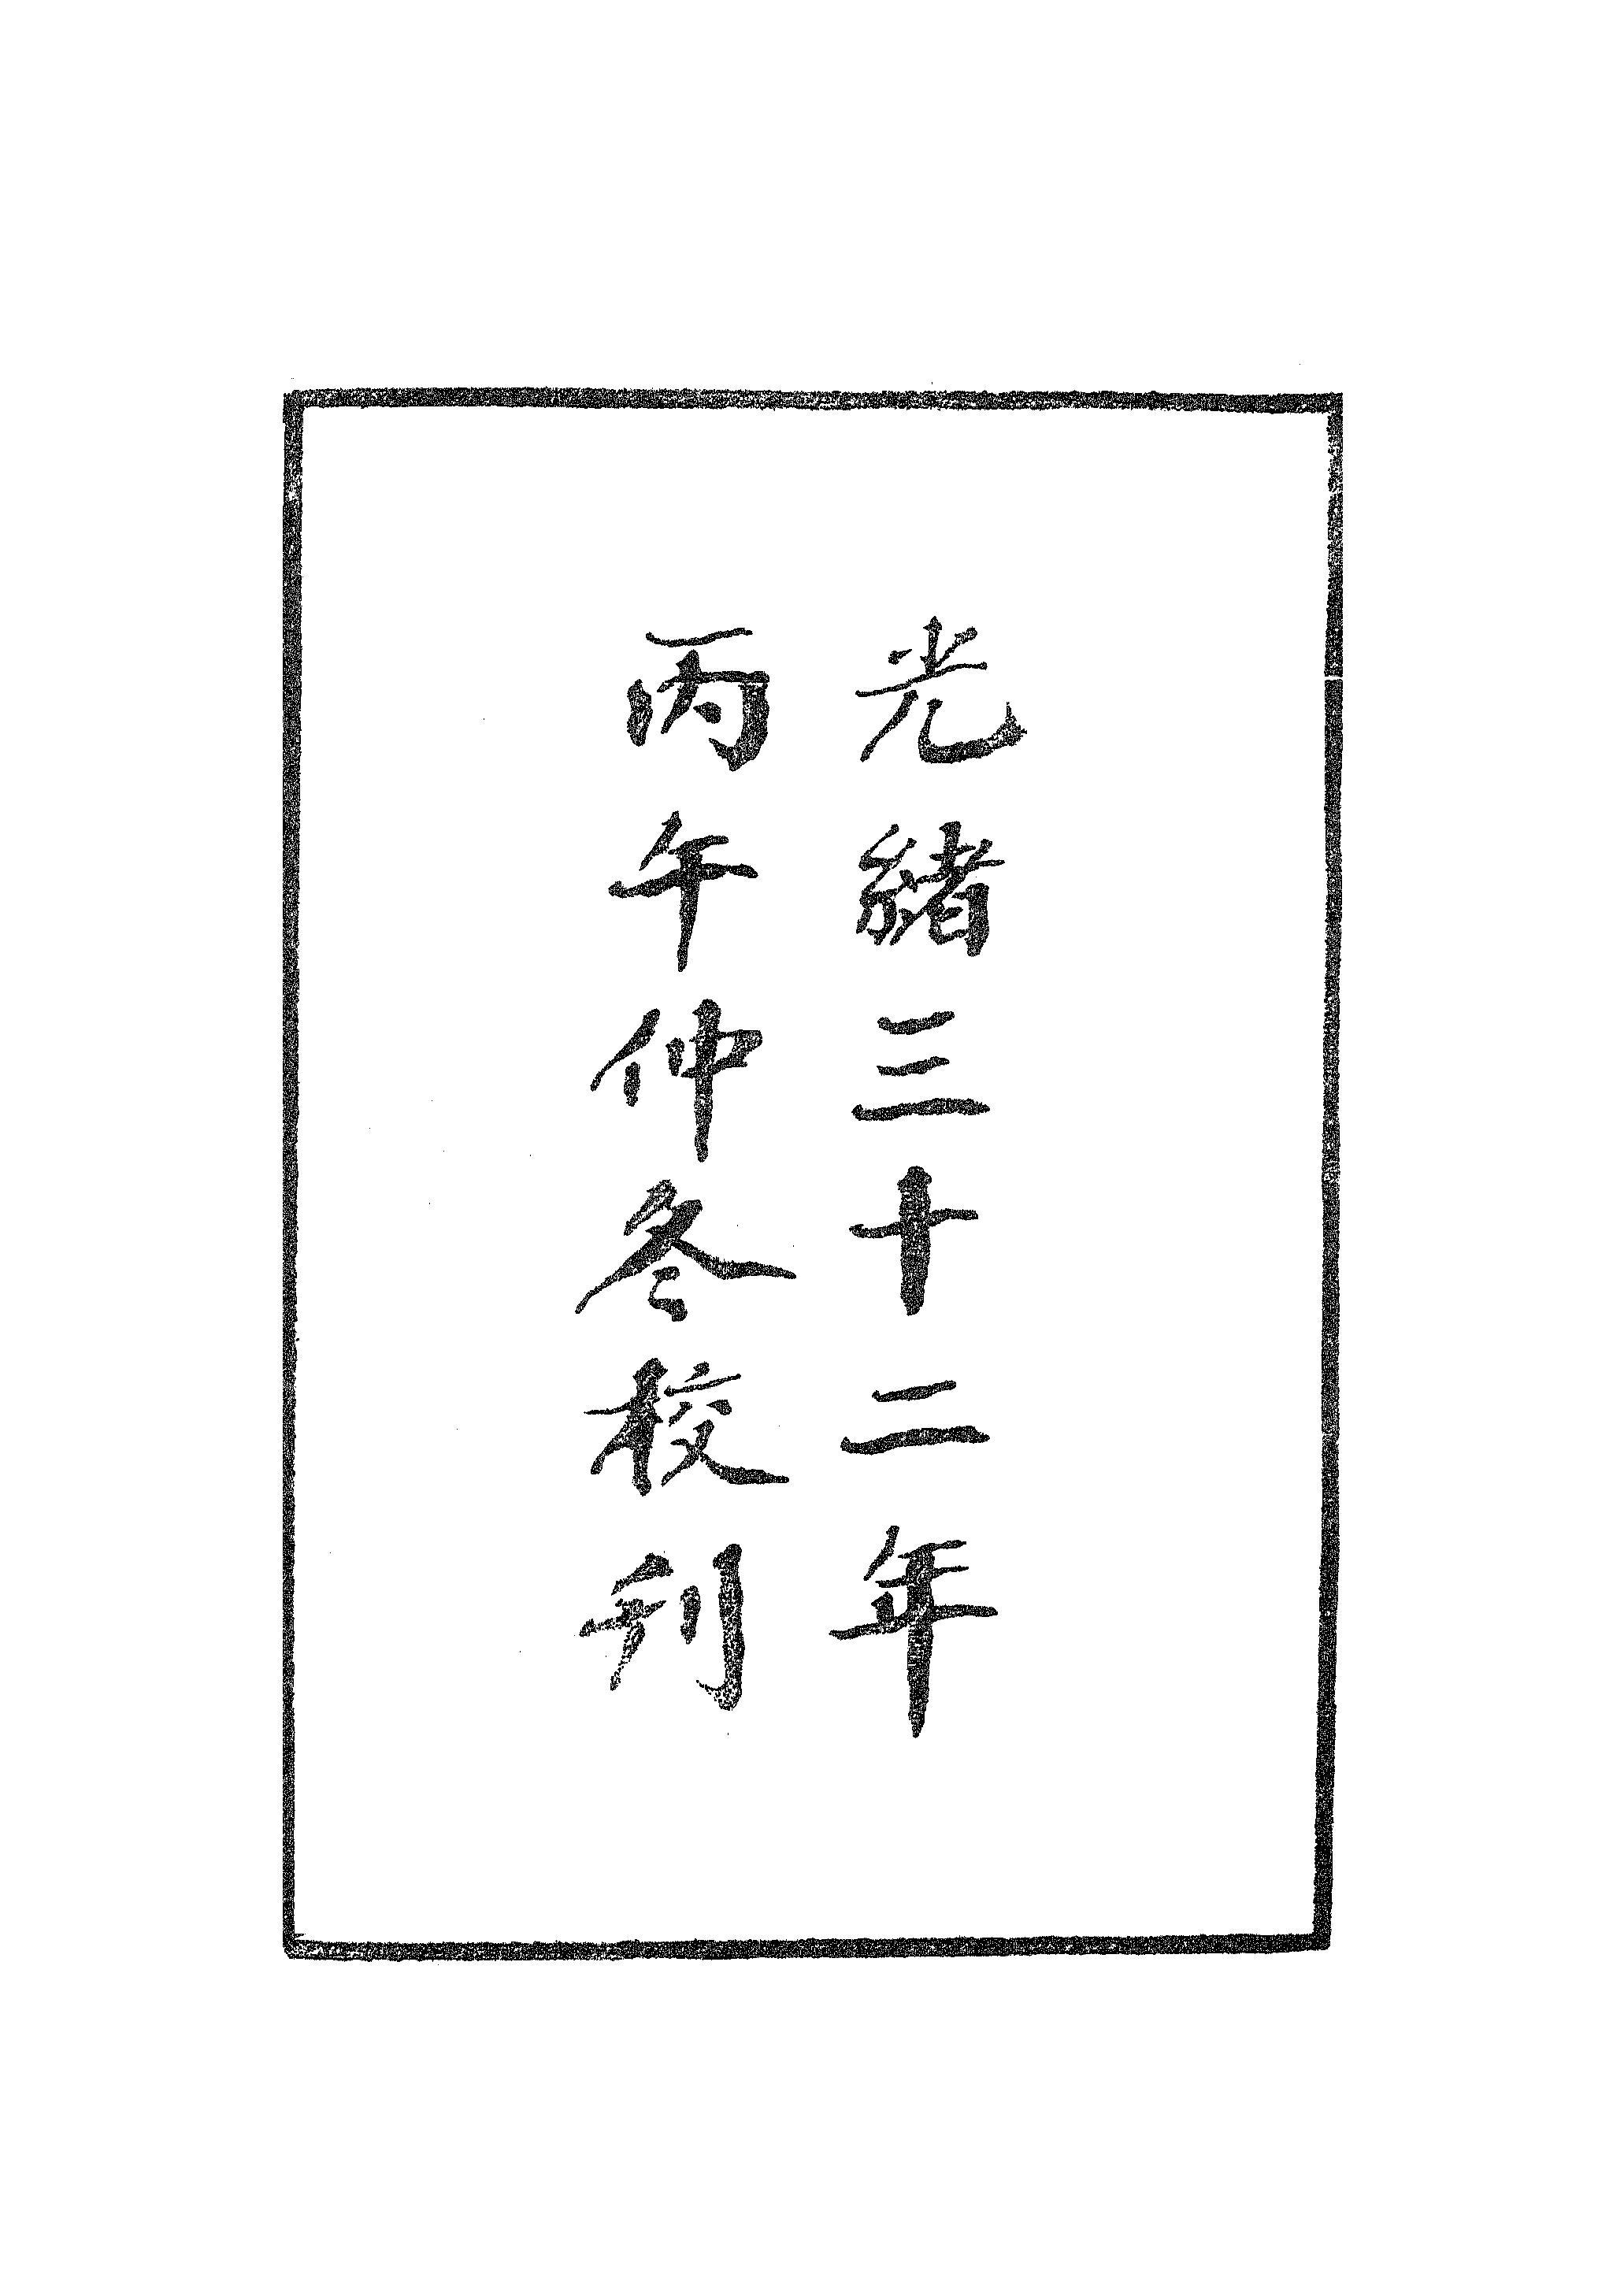 光緒三十二年
丙午仲冬校刋